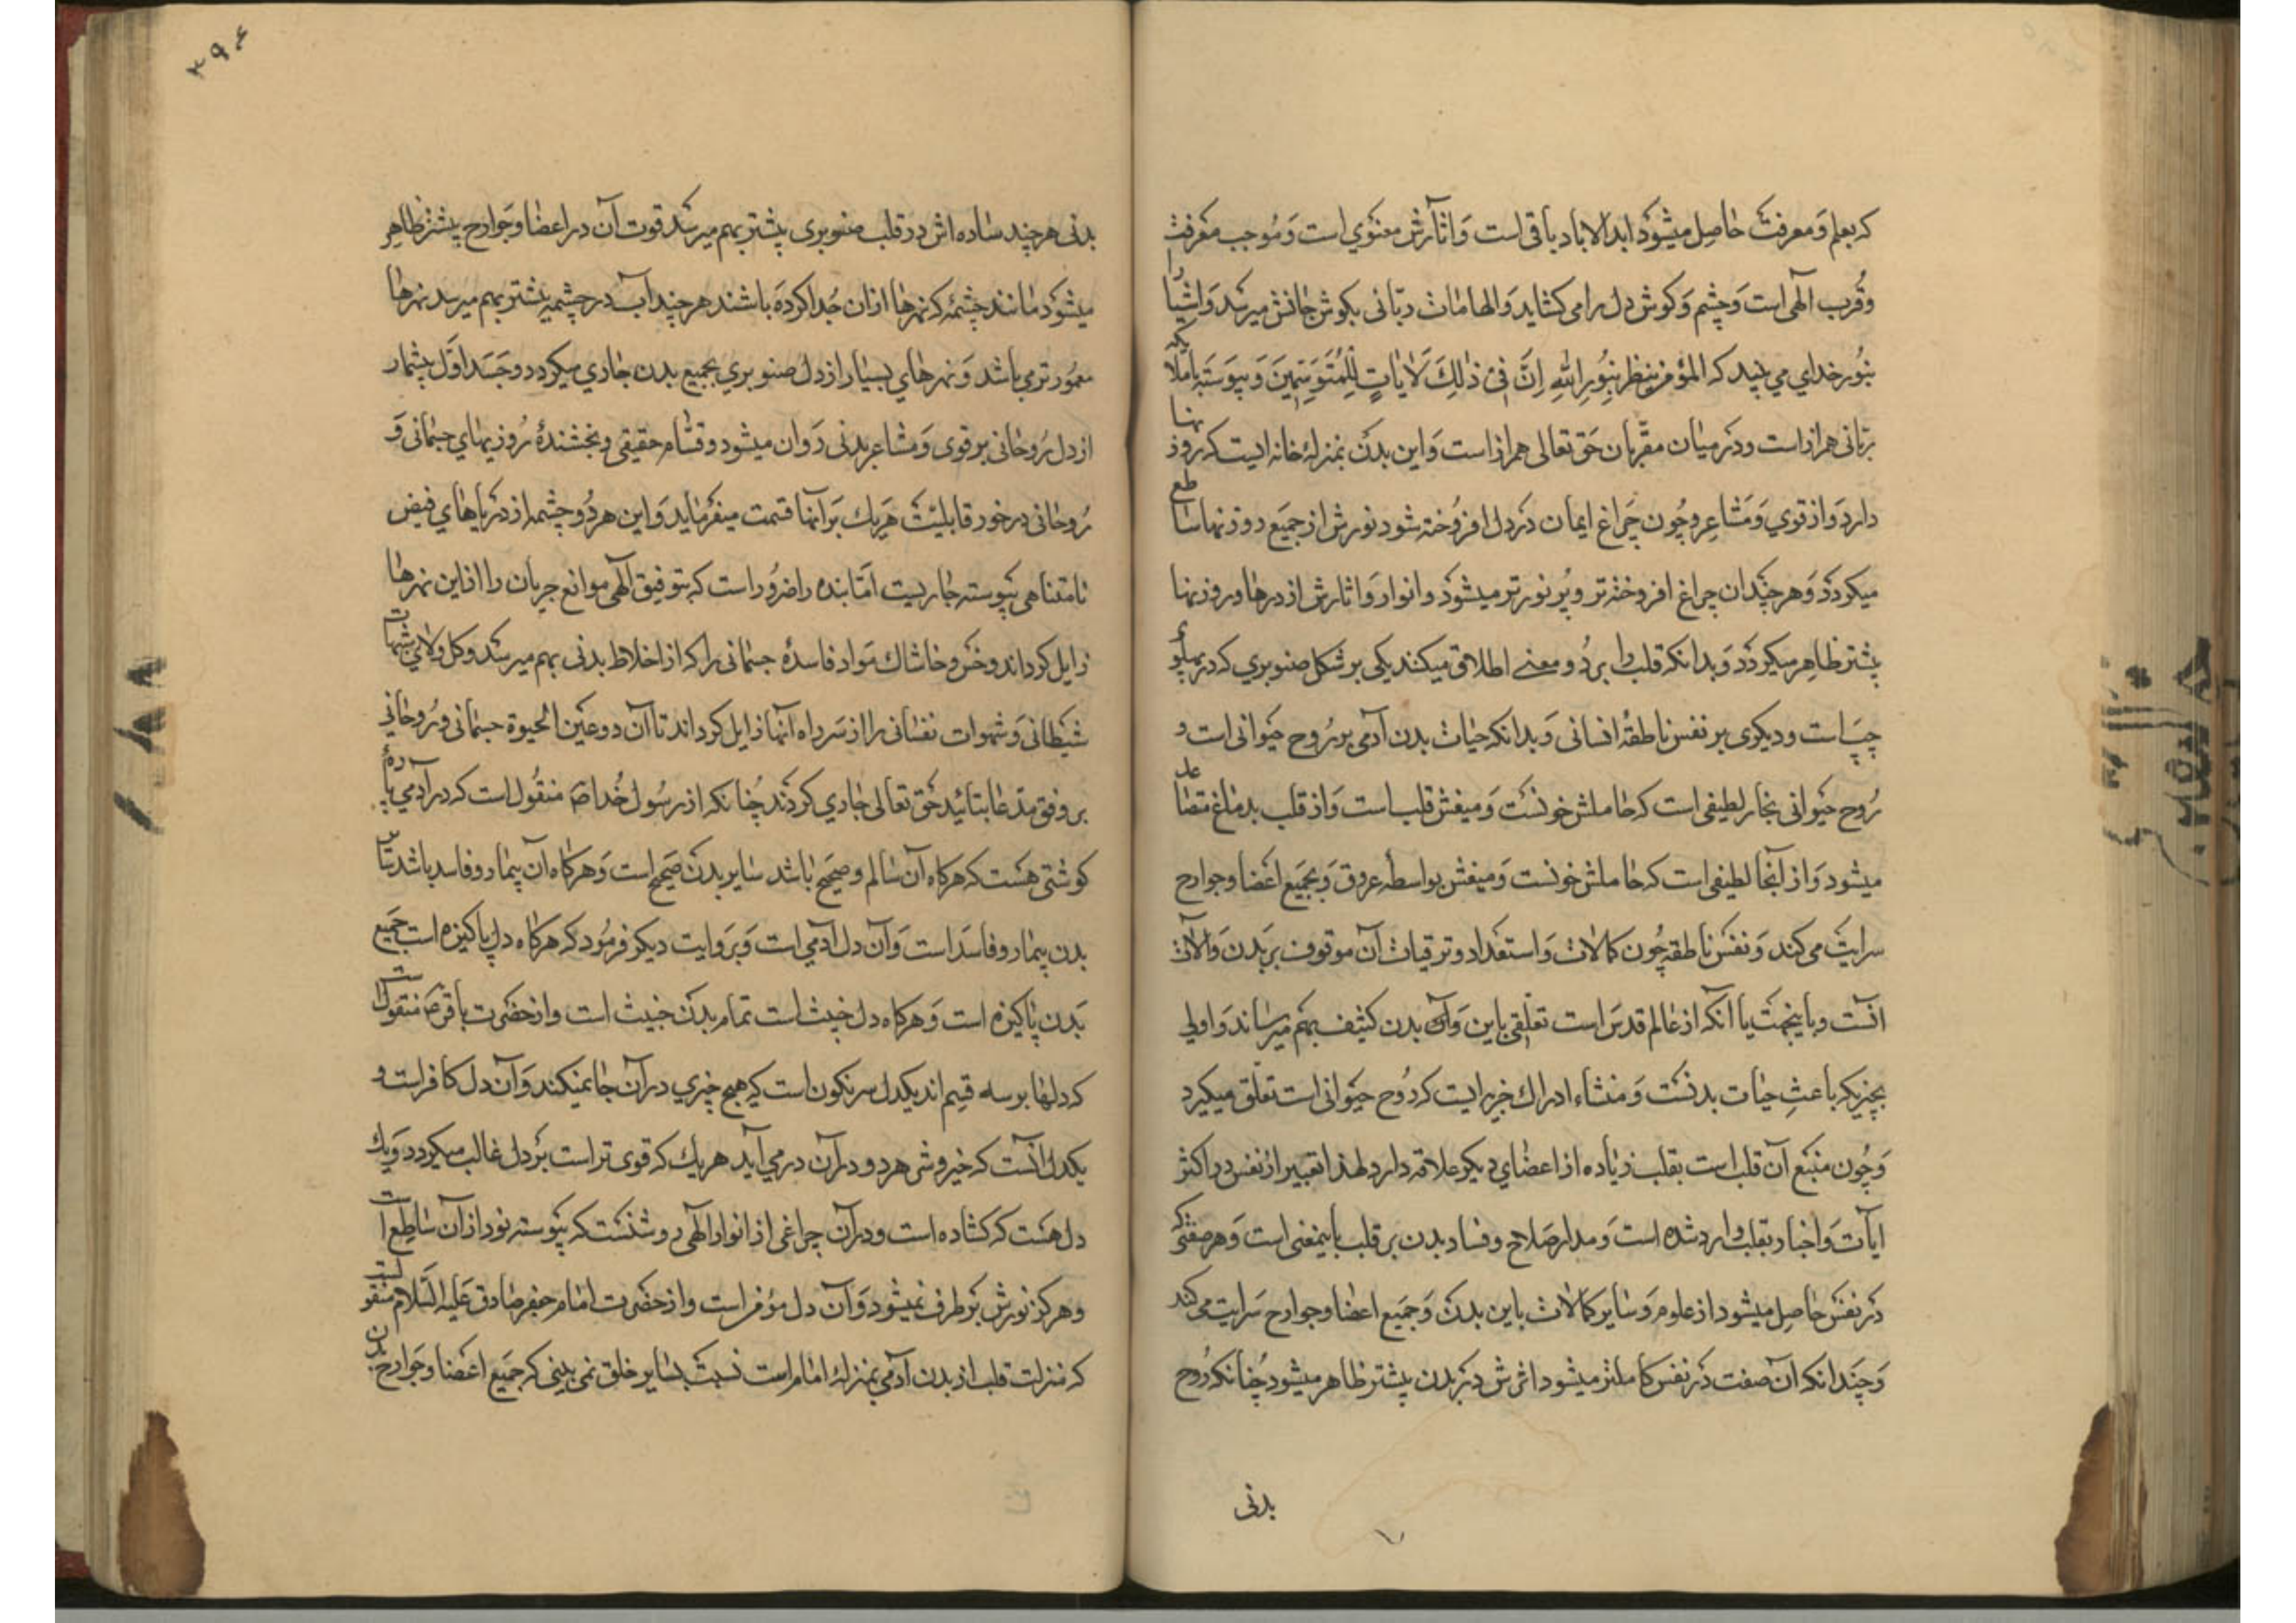 که بعلم و معرفت حاصل میشود ابدالاباد باقی است و اثارش معنوی است و موجب معرفت
و قرب آلهی است و چشم و کوش دل را می کشاید و الهامات ربانی بکوش جانش میرسد و اشیا را
بنور خدای می بیند که المؤمن ینظر بنور الله اِنَّ فی ذٰلِکَ لَاٰیاتٍ لِلْمُتَوَسِّمینَ و پیوسته باملائکه
ربّانی همراز است و در میان مقرّبان حق تعالی همراز است و این بدن بمنزلهٔ خانه ایست که روزنها
دارد و از قوی و مشاعر و چون چراغ ایمان در دل افروخته شود نورش از جمیع روزنها ساطع
میکردد و هر چند ان چراغ افروخته تر و پر نورتر میشود و انوار و اثارش از درها و روزنها
بیشتر ظاهر میکردد و بدانکه قلب را بر دو معنے اطلاق میکنند یکی بر شکل صنوبری که در پهلوی
چپ است و دیکری بر نفس ناطقهٔ انسانی و بدانکه حیات بدن آدمی بر روح حیوانی است و
روح حیوانی بخار لطیفی است که حاملش خونست و منبعش قلب است و از قلب بدماغ متصاعد
میشود و از آنجا لطیفی است که حاملش خونست و منبعش بواسطهٔ عروق و بجمیع اعضا و جوارح
سرایت می کند و نفس ناطقه چون کمالات و استعداد و ترقیات آن موقوف بر بدن و آلات
انست و باینجهت با آنکه از عالم قدس است تعلّقی باین و آن بدن کثیف بهم میرساند و اولی
بچیزیکه باعثِ حیات بدنست و منشاء ادراك خیرایت که روح حیوانی است تعلّق میکیرد
و چون منبع آن قلب است بقلب زیاده از اعضای دیکر علاقه دارد لهذا تعبیر از نفس در اکثر
ایات و اخبار بقلب وارد شده است و مدار صلاح و فساد بدن بر قلب باینمعنی است و هر صفتی که
در نفس حاصل میشود از علوم و سایر کمالات باین بدن و جمیع اعضا و جوارح سرایت می کند
و چندانکه ان صفت در نفس کاملتر میشود اثرش در بدن بیشتر ظاهر میشود چنانکه روح
بدنی
۳۹۶
بدنی هر چند ساده اش در قلب صنوبری بیشتر بهم میرسد قوت آن در اعضا و جوارح بیشتر ظاهر
میشود مانند چشمهٔ که نهرها ازان جدا کرده باشند هر چند آب در چشمه بیشتر بهم میرسد نهرها
معمورتر می باشد و نهرهای بسیار از دل صنوبری بجمیع بدن جاری میکردد و جداول بیشمار
از دل روحانی بر قوی و مشاعر بدنی روان میشود و قسّام حقیقی و بخشندهٔ روزیهای جسمانی و
روحانی در خور قابلیت هر یك بر آنها قسمت میفرماید و این هر دو چشمه از دریاهای فیض
نامتناهی پیوسته جاریست امّا بنده را ضرور است که بتوفیق آلهی موانع جریان را از این نهرها
زایل کرداند و خس و خاشاك مواد فاسدهٔ جسمانی را که از اخلاط بدنی بهم میرسد و کل و لای شبهات
شیطانی و شهوات نفسانی را از سر راه آنها زایل کرداند تا آن دو عین الحیوة جسمانی و روحانی
بر وفق مدّعا بتائید حق تعالی جاری کردند چنانکه از رسول خدا ص منقول است که در آدمی پارهٔ
کوشتی هست که هر کاه آن سالم و صحیح باشد سایر بدن صحیح است و هر کاه آن بیمار و فاسد باشد سایر
بدن بیمار و فاسد است و آن دل آدمی است و بروایت دیکر فرمود که هر کاه دل پاکیزه است جمیع
بدن پاکیزه است و هر کاه دل خبیث است تمام بدن خبیث است و از حضرت باقر ص منقول است
که دلها بر سه قسم اند یکدل سرنکون است که هیچ خیری در آن جا نمیکند و آن دل کافر است و
یکدل انست که خیر و شر هر دو در آن در می آید هر یك که قوی تر است بر دل غالب میکردد و یك
دل هست که کشاده است و در آن چراغی از انوار آلهی روشنست که پیوسته نور از آن ساطع است
و هر کز نورش بر طرف نمیشود و آن دل مؤمن است و از حضرت امام جعفر صادق علیه السلام منقولست
که منزلت قلب از بدن آدمی بمنزلهٔ امام است نسبت بسایر خلق نمی بینی که جمیع اعضا و جوارح بدن